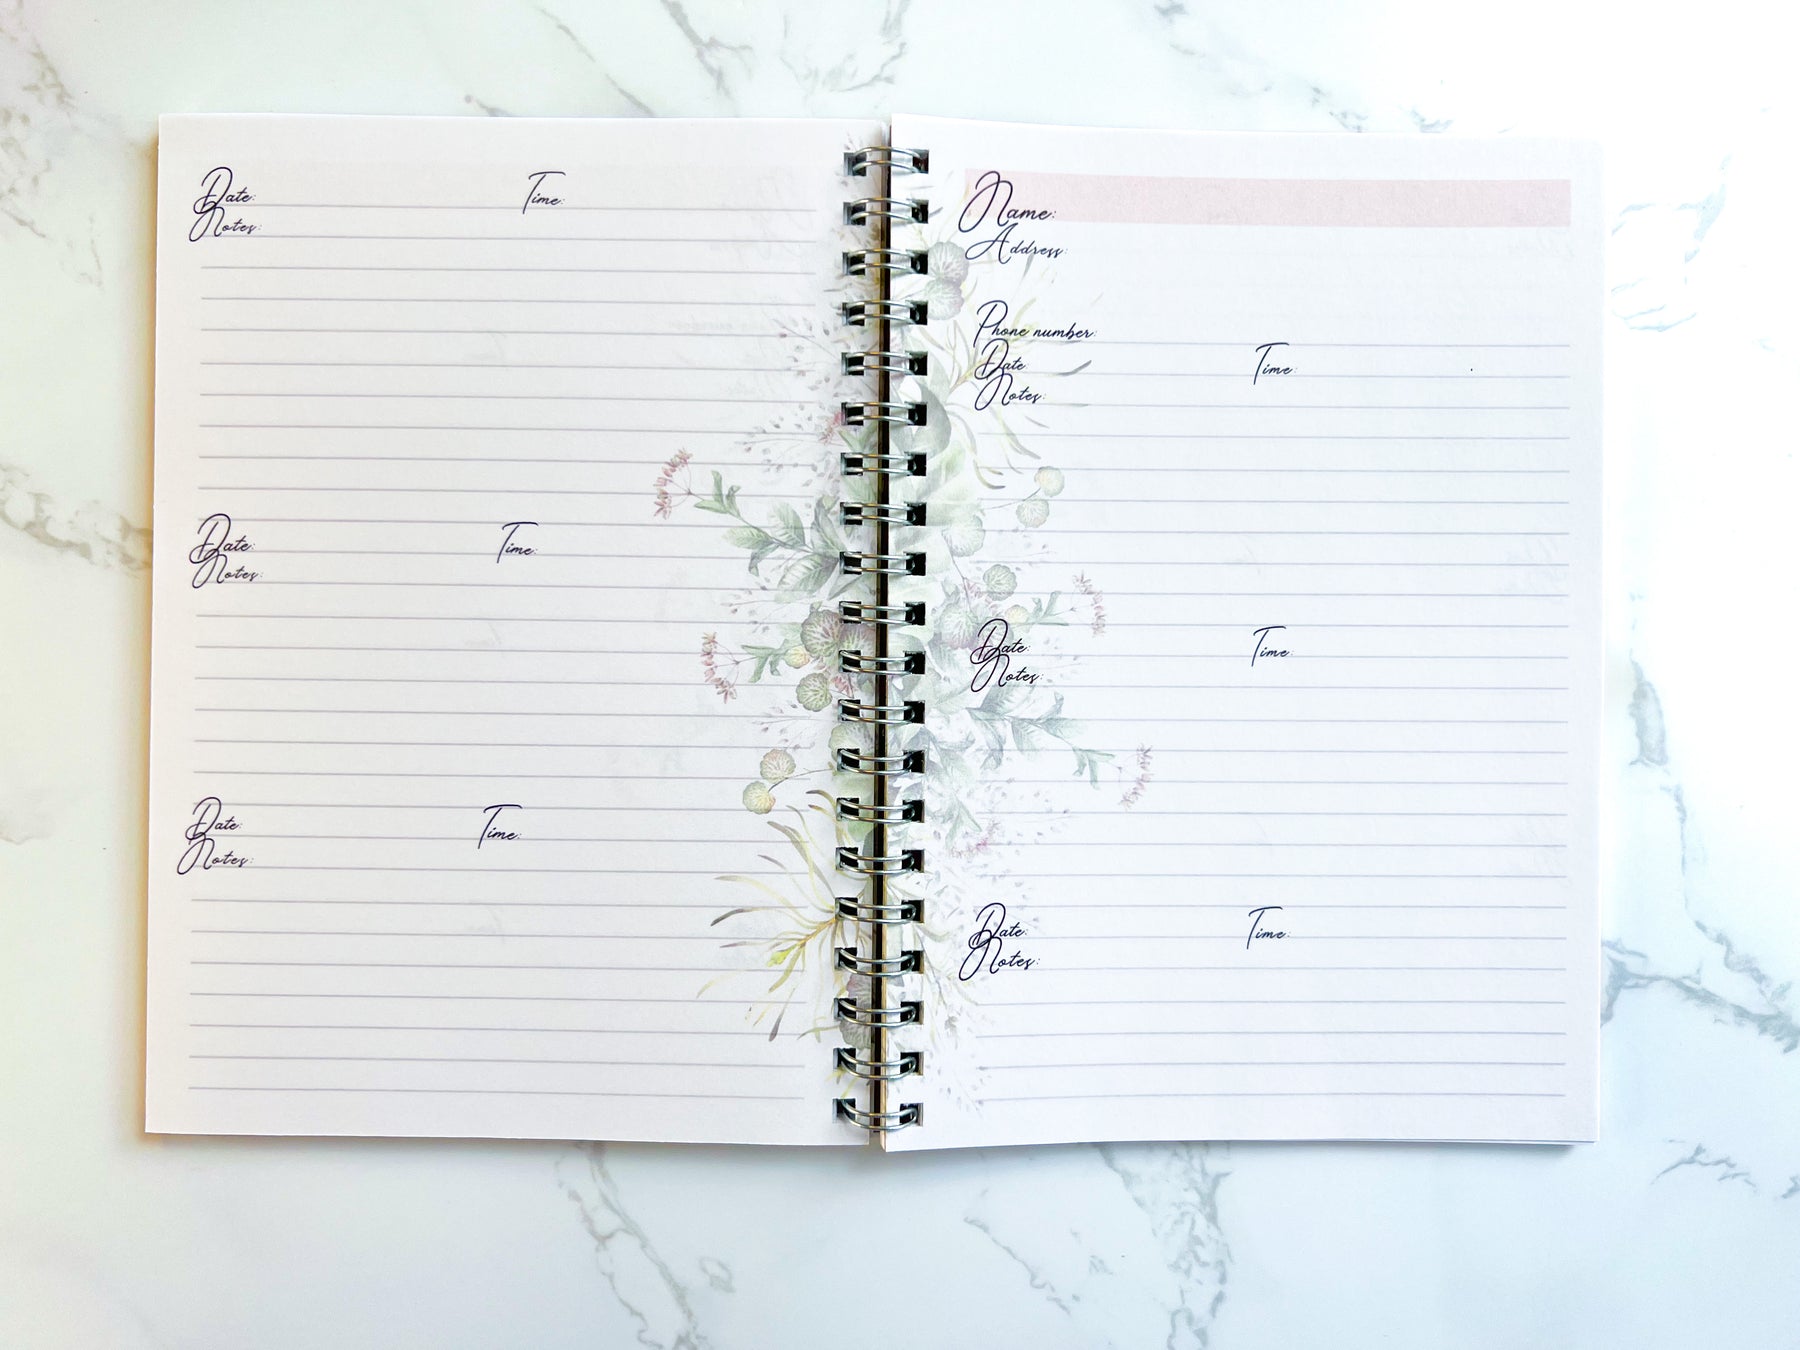 Date: Time:
Notes:
Date: Time:
Notes:
Date: Time:
Notes:
Name:
Address:
Phone number:
Date: Time:
Notes:
Date: Time:
Notes:
Date: Time:
Notes: